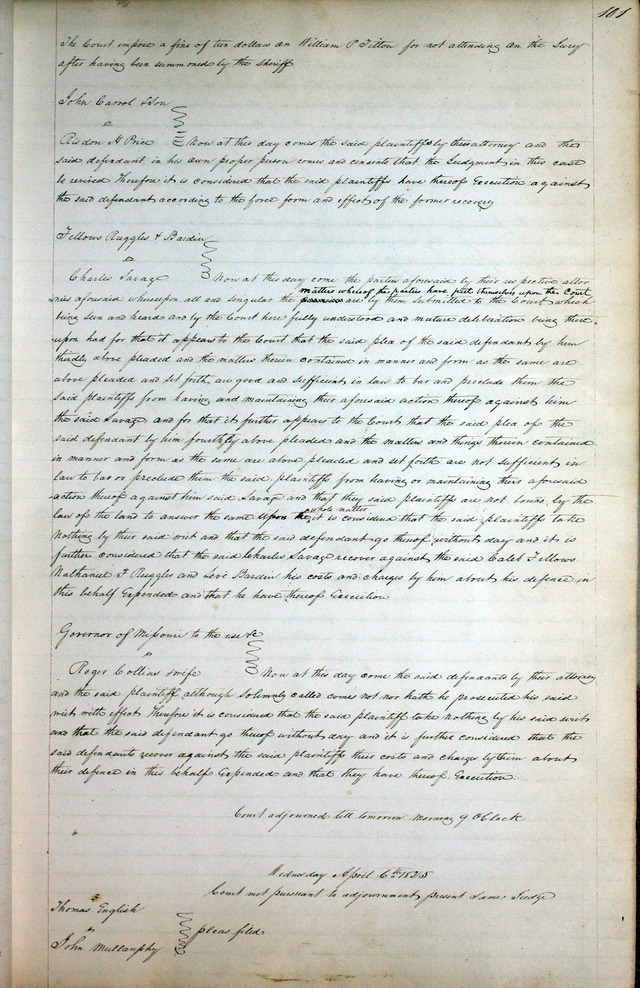 101
The Court impose a fine of two dollars on William P Titton for not attending on the Jury
after having been summoned by the sheriff
John Carrol & Son
vs
Risdon H Price Now at this day comes the said plaintiffs by their attorney and the
said defendant in his own proper person comes and consents that the Judgment in this case
be revived Therefore it is considered that the said plaintiffs have thereof Execution against
the said defendant according to the force form and effect of the former recovery
Fellows Ruggles & Bardin
vs
Charles Savage Now at this day come the parties aforesaid by their respective attor
matters whereof the parties have put themselves upon the Court
nies aforesaid whereupon all and singular the premises are by them submitted to the Court which
being seen and heard and by the Court here fully understood and mature deliberation being there
upon had for that it appears to the Court that the said plea of the said defendant by him
thirdly above pleaded and the matters therein contained in manner and form as the same are
above pleaded and set forth, are good and sufficient in law to bar and preclude them the
said plaintiffs from having and maintaining their aforesaid action thereof against him
the said Savage, and for that it further appears to the Court that the said plea of the
said defendant by him fourthly above pleaded and the matters and things therein contained
in manner and form as the same are above pleaded and set forth are not sufficient in
law to bar or preclude them the said plaintiffs from having or maintaining their aforesaid
action thereof against him said Savage and that they said plaintiffs are not bound by the
whole matter
law of the land to answer the same upon the it is considered that the said plaintiffs take
nothing by their said writ and that the said defendant go thereof without day and it is
further considered that the said Charles Savage recover against the said Caleb Fellows
Nathaniel F Ruggles and Levi Bardin his costs and charges by him about his defence in
this behalf Expended and that he have thereof Execution
Governor of Missouri to the use &c
vs
Roger Collins & wife Now at this day come the said defendants by their attorney
and the said plaintiff although solemnly called comes not nor hath he prosecuted his said
writ with effect Therefore it is considered that the said plaintiff take nothing by his said writ
and that the said defendant go thereof without day and it is further considered that the
said defendants recover against the said plaintiffs their costs and charges by them about
their defence in this behalf Expended and that they have thereof Execution.
Court adjourned till tomorrow morning 9 OClock
Wednesday April 6th 1825
Court met pursuant to adjournment, present same Judge
Thomas English
vs
John Mullanphy pleas filed